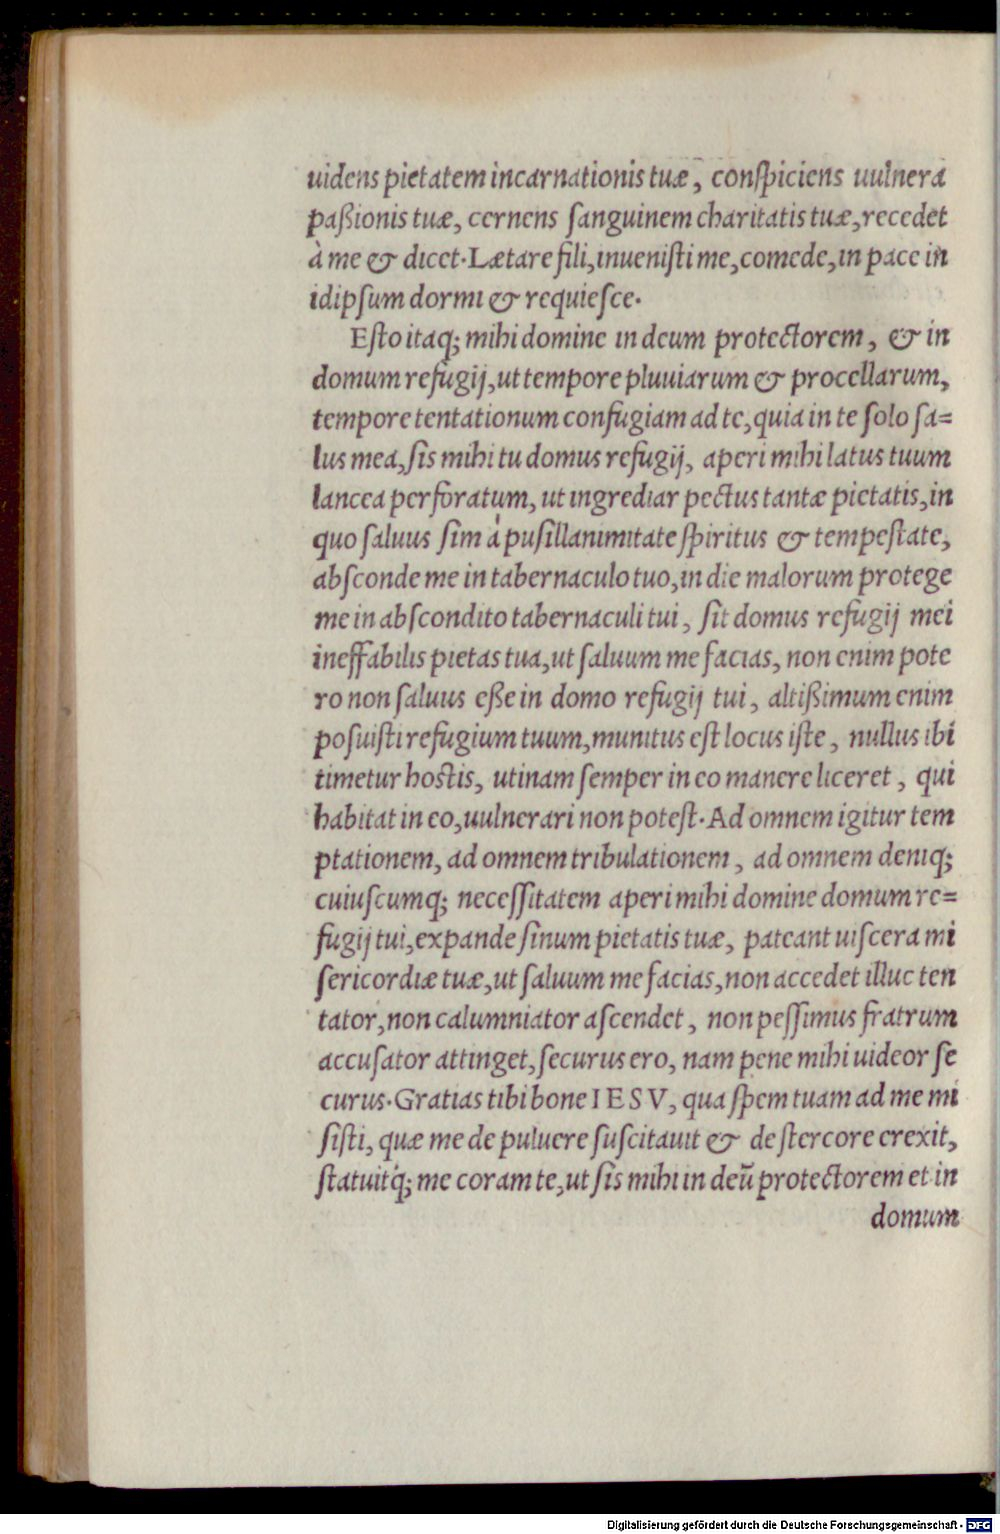 uidens pietatem incarnationis tuæ, conſpiciens uulnera
paßionis tuæ, cernens ſanguinem charitatis tuæ, recedet
à me & dicet. Lætare fili, inueniſti me, comede, in pace in
idipſum dormi & requieſce.
Eſto itaq; mihi domine in deum protectorem, & in
domum refugij, ut tempore pluuiarum & procellarum,
tempore tentationum confugiam ad te, quia in te ſolo ſa=
lus mea, ſis mihi tu domus refugij, aperi mihi latus tuum
lancea perforatum, ut ingrediar pectus tantæ pietatis, in
quo ſaluus ſim à puſillanimitate ſpiritus & tempeſtate,
abſconde me in tabernaculo tuo, in die malorum protege
me in abſcondito tabernaculi tui, ſit domus refugij mei
ineffabilis pietas tua, ut ſaluum me facias, non enim pote
ro non ſaluus eße in domo refugij tui, altißimum enim
poſuiſti refugium tuum, munitus eſt locus iſte, nullus ibi
timetur hostis, utinam ſemper in eo manere liceret, qui
habitat in eo, uulnerari non poteſt. Ad omnem igitur tem
ptationem, ad omnem tribulationem, ad omnem deniq;
cuiuſcumq; neceſſitatem aperi mihi domine domum re=
fugij tui, expande ſinum pietatis tuæ, pateant uiſcera mi
ſericordiæ tuæ, ut ſaluum me facias, non accedet illuc ten
tator, non calumniator aſcendet, non peſſimus fratrum
accuſator attinget, ſecurus ero, nam pene mihi uideor ſe
curus. Gratias tibi bone IESV, qua ſpem tuam ad me mi
ſiſti, quæ me de puluere ſuſcitauit & de ſtercore erexit,
ſtatuitq́; me coram te, ut ſis mihi in deū protectorem et in
domum
Digitalisierung gefördert durch die Deutsche Forschungsgemeinschaft - DFG